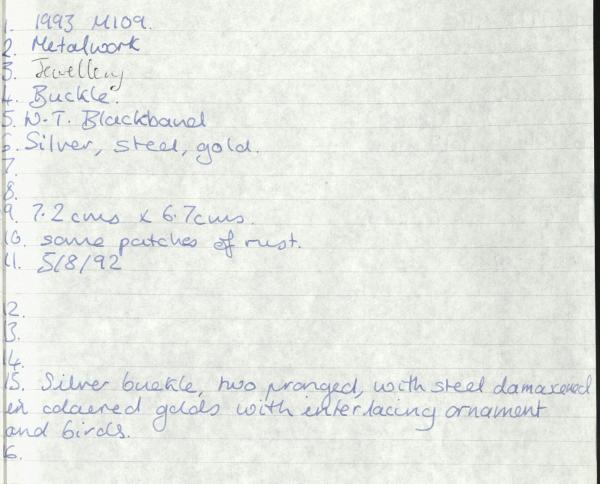 1. 1993 M109.
2. Metalwork
3. Jewellery
4. Buckle.
5. W.T. Blackband
6. Silver, steel, gold.
7.
8.
9. 7.2 cms x 6.7cms.
10. some patches of rust.
11. 5/8/92
12.
13.
14.
15. Silver buckle, two pronged, with steel damascened
in coloured golds with interlacing ornament
and birds.
16.